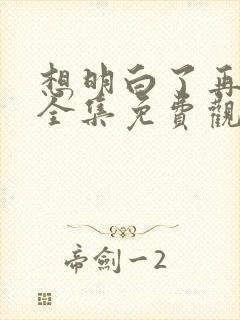 想明白了再
全集免費觀
帝劍一2